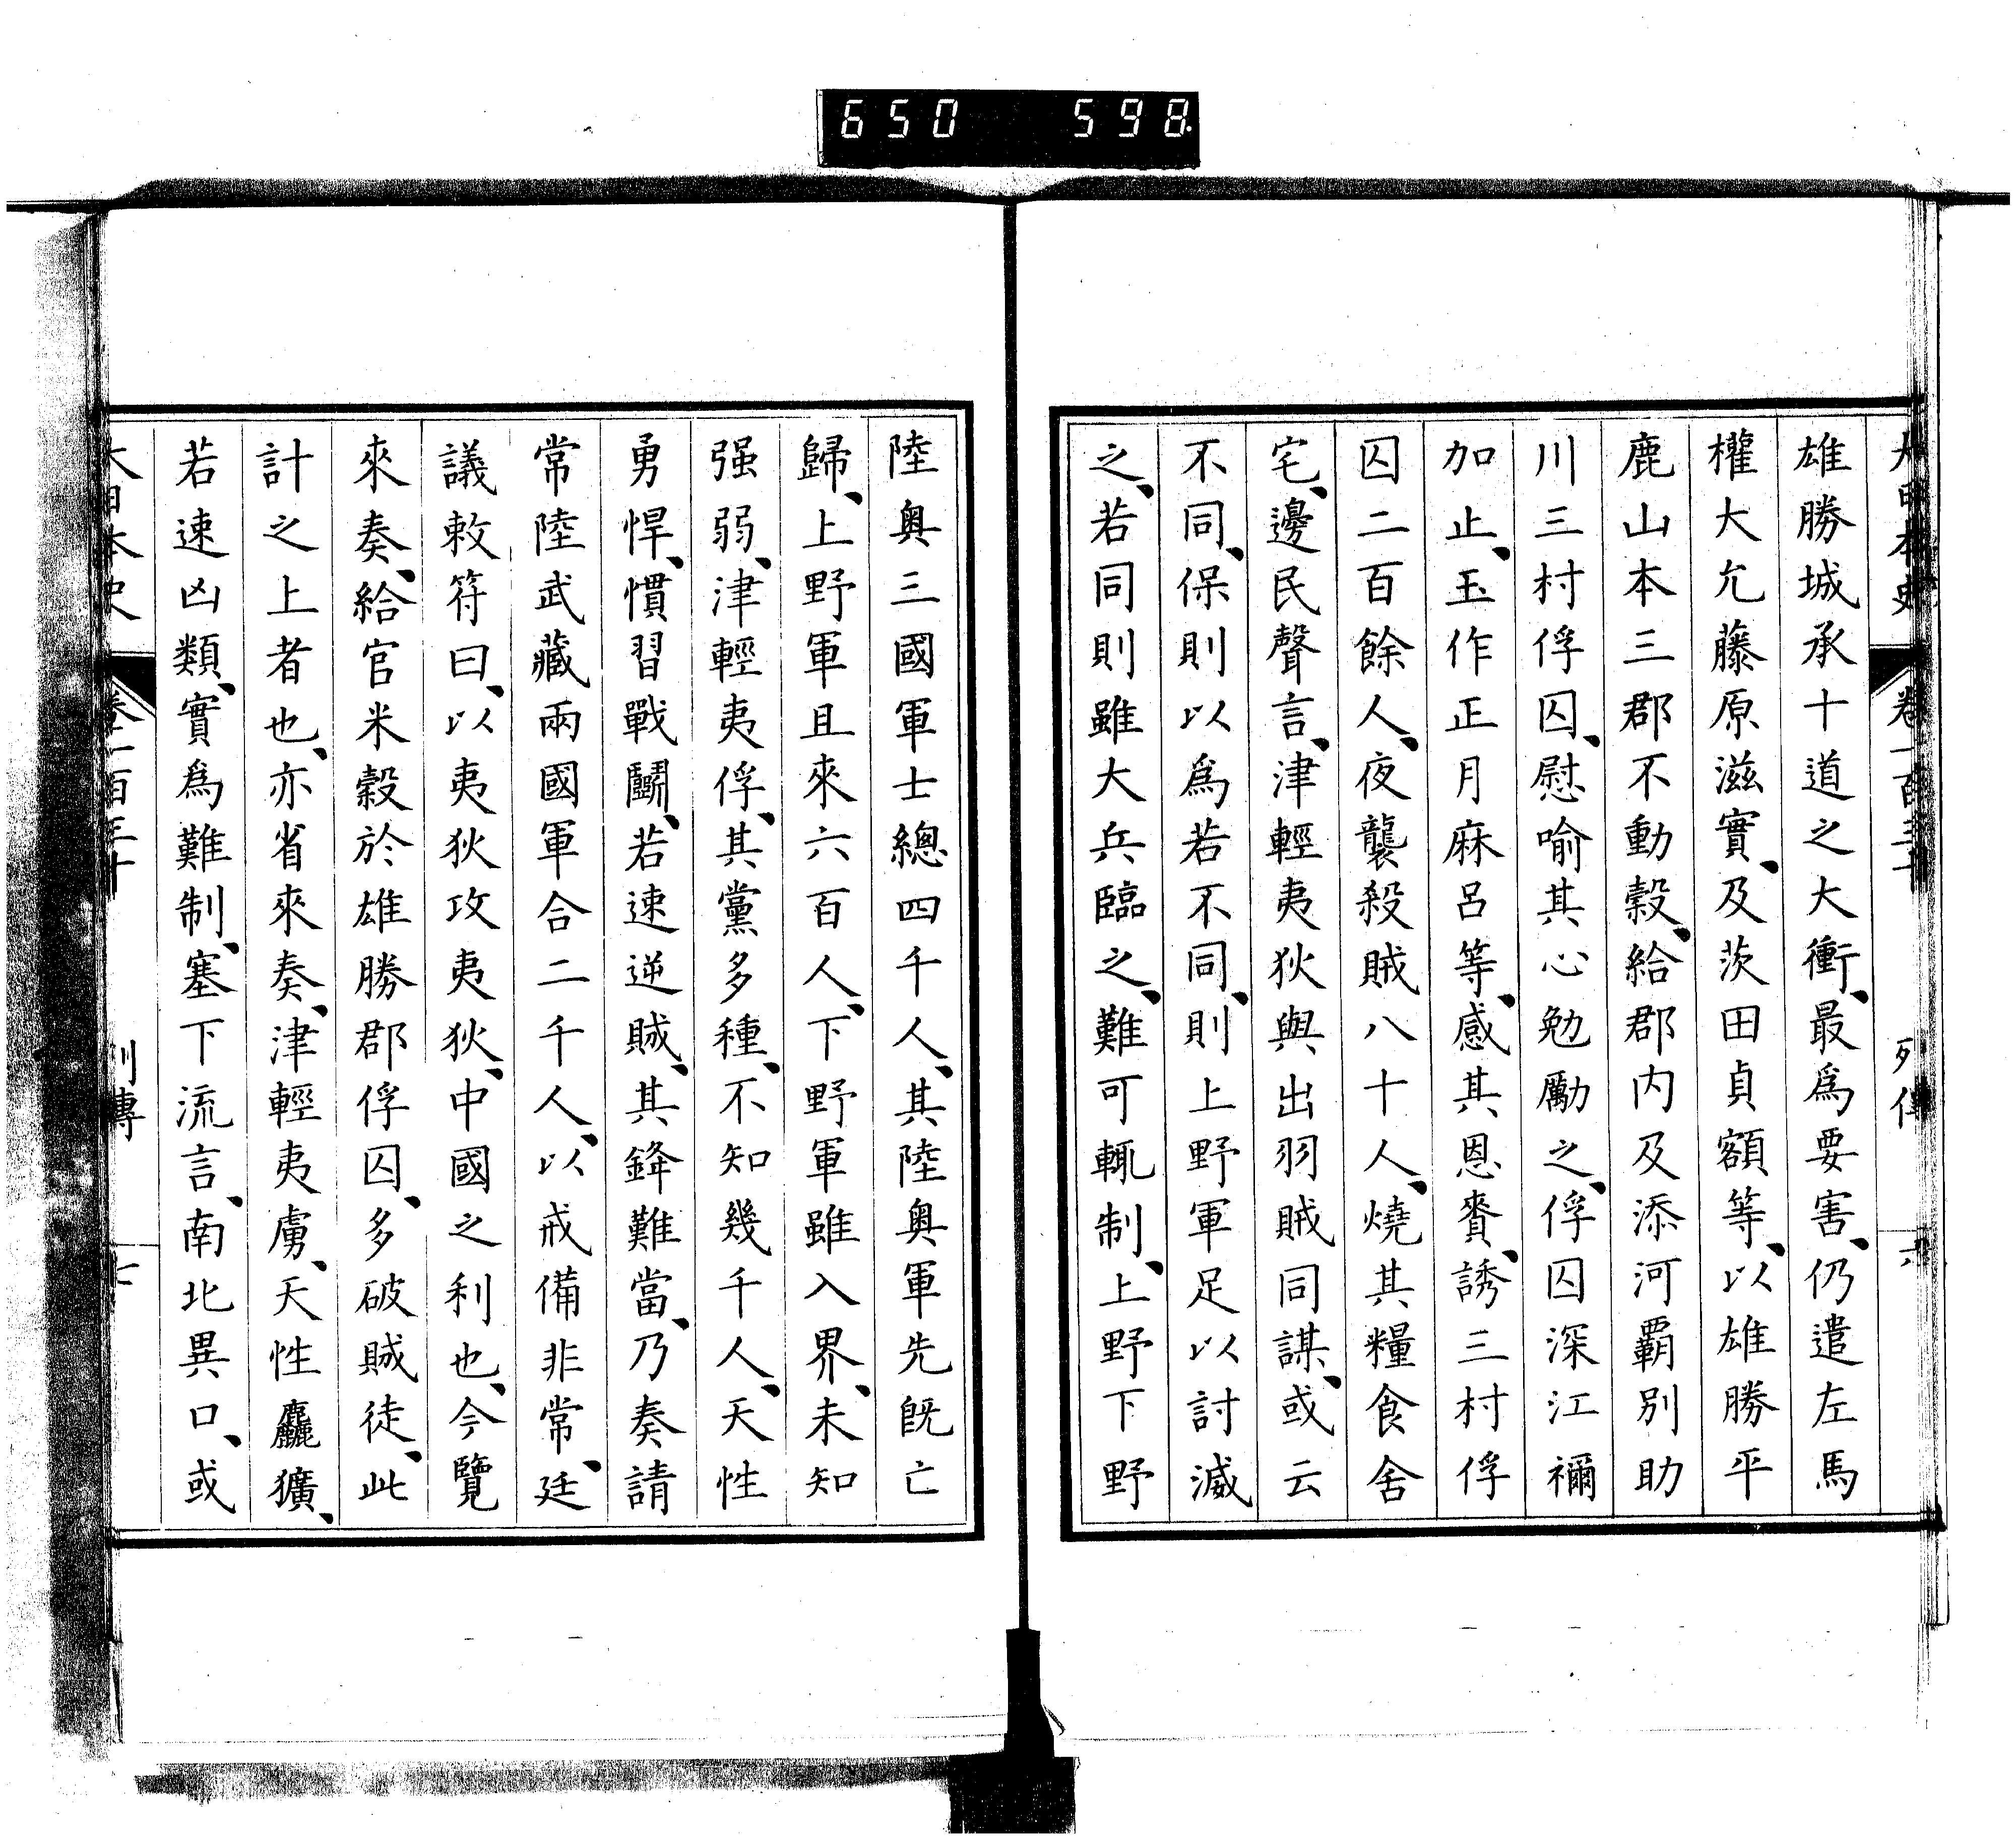 650 598
大日本史 卷一百三十 列傳 六
雄勝城承十道之大衝、最爲要害、仍遣左馬
權大允藤原滋實、及茨田貞額等、以雄勝平
鹿山本三郡不動穀、給郡内及添河覇別助
川三村俘囚、慰喻其心勉勵之、俘囚深江禰
加止、玉作正月麻呂等、感其恩賚、誘三村俘
囚二百餘人、夜襲殺賊八十人、燒其糧食舍
宅、邊民聲言、津輕夷狄與出羽賊同謀、或云
不同、保則以爲若不同、則上野軍足以討滅
之、若同則雖大兵臨之、難可輒制、上野下野
陸奧三國軍士總四千人、其陸奧軍先旣亡
歸、上野軍且來六百人、下野軍雖入界、未知
强弱、津輕夷俘、其黨多種、不知幾千人、天性
勇悍、慣習戰鬭、若速逆賊、其鋒難當、乃奏請
常陸武藏兩國軍合二千人、以戒備非常、廷
議敕符曰、以夷狄攻夷狄、中國之利也、今覽
來奏、給官米穀於雄勝郡俘囚、多破賊徒、此
計之上者也、亦省來奏、津輕夷虜、天性麤獷、
若速凶類、實爲難制、塞下流言、南北異口、或
大日本史 卷一百三十 列傳 七